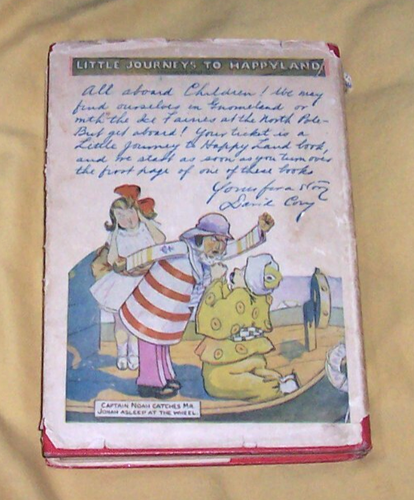 LITTLE JOURNEYS TO HAPPYLAND
All aboard Children! We may
find ourselves in Gnomeland or
with the Ice Fairies at the North Pole-
But get aboard! Your ticket is a
Little Journey to Happy Land book,
and we start as soon as you turn over
the front page of one of these books
Yours for a story
David Cory
CAPTAIN NOAH CATCHES MR.
JONAH ASLEEP AT THE WHEEL.